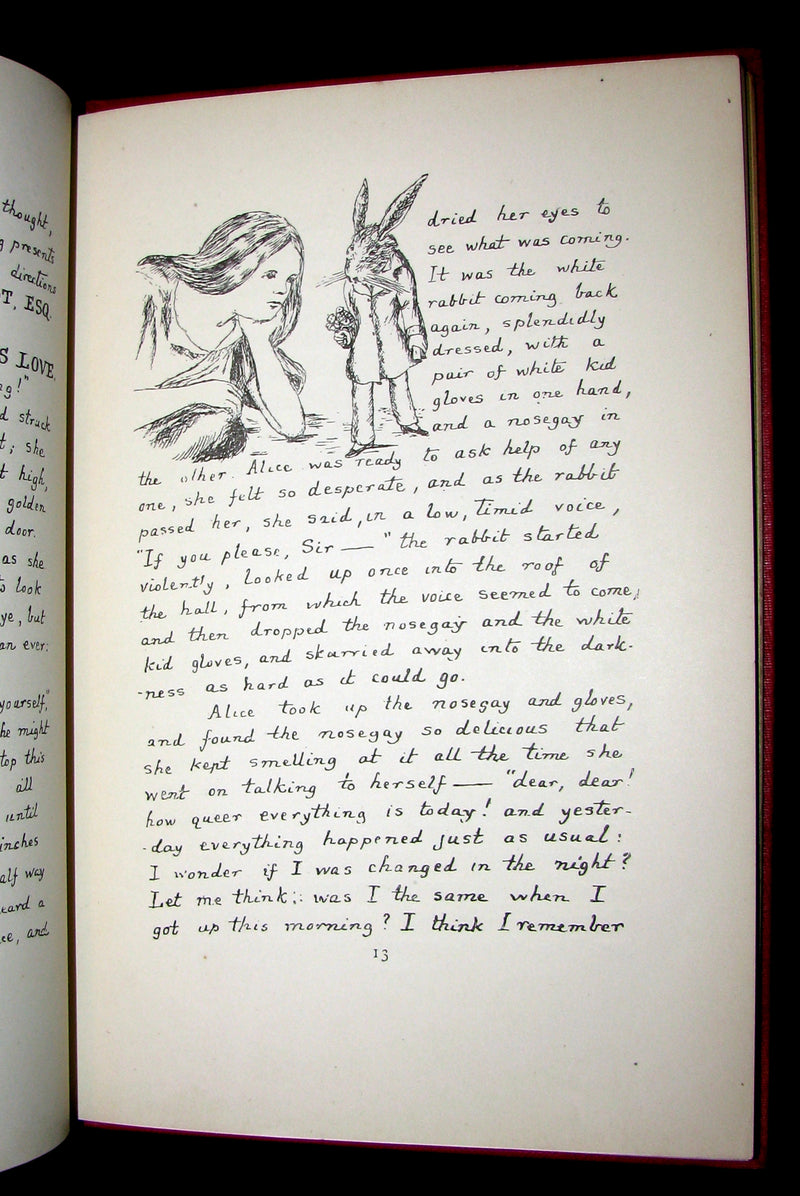 thought,
presents
directions
T, ESQ.
S LOVE,
g!"
d struck
t; she
t high,
golden
door.
as she
to look
ye, but
an ever:
yourself,"
he might
top this
all
until
inches
alf way
eard a
ce, and
dried her eyes to
see what was coming.
It was the white
rabbit coming back
again, splendidly
dressed, with a
pair of white kid
gloves in one hand,
and a nosegay in
the other. Alice was ready to ask help of any
one, she felt so desperate, and as the rabbit
passed her, she said, in a low, timid voice,
"If you please, Sir —" the rabbit started
violently, looked up once into the roof of
the hall, from which the voice seemed to come,
and then dropped the nosegay and the white
kid gloves, and skurried away into the dark-
-ness as hard as it could go.
Alice took up the nosegay and gloves,
and found the nosegay so delicious that
she kept smelling at it all the time she
went on talking to herself — "dear, dear!
how queer everything is today! and yester-
-day everything happened just as usual:
I wonder if I was changed in the night?
Let me think: was I the same when I
got up this morning? I think I remember
13